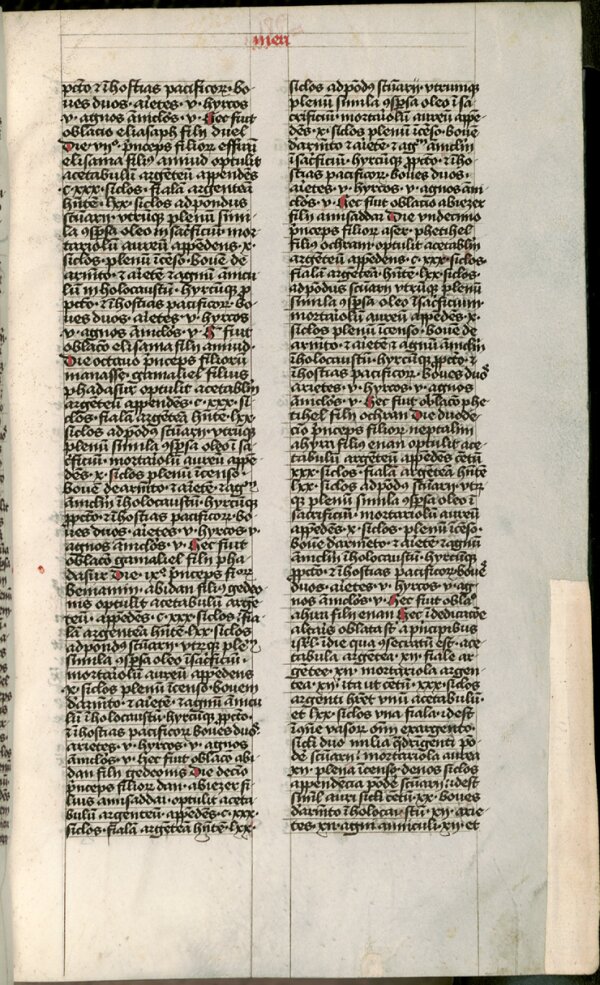 meri
pcto et ihostias pacificor· bo
ues duos· aietes· v· hyrcos
v· agnos amiclos· v· Hec fuit
oblacio eliasaph filij duel
Die vijo· pnceps filior effraim
elisama filius amiud optulit
acetabulu argeteu appendes
c·xxx· siclos· fiala argentea
hnte· lxx· siclos adpondus
scuarij· vtruqz plenu simi
la 9spsa oleo in sacficiu· mor
tariolu aureu appedens· x·
siclos· plenu icenso· boue de
armeto· et aiete et agnu anicu
lu in holocaustu· hyrcuqz p
pcto· et ihostias pacificor· bo
ues duos· aietes· v· hyrcos
v· agnos amiclos· v· H· fuit
oblaco elisama filij amiud·
Die octauo pnceps filioru
manasse· gamaliel filius
phadasur optulit acetablm
argeteu appendes· c·xxx· si
clos· fiala argetea hnte· lxx·
siclos adpodus scuarij· vtruqz
plenu simila 9spsa oleo i sa
crificiu· mortariolu aureu appe
des· x· siclos· plenu icenso·
boue de armeto· et aiete· et agnu
aniclm i holocaustu· hyrcuqz
ppcto· et ihostias pacificor· bo
ues duos· aietes· v· hyrcos v·
agnos amiclos· v· Hec fuit
oblaco gamaliel filij pha
dasur Die· ixo· pnceps filior
beniamin· abidan filius gedeo
nis optulit acetabulu arge
teu· appedes· c·xxx· siclos· fia
la argentea hnte· lxx· siclos
adpondus scuarij· vtrqz plenu
simila 9spsa oleo i sacficiu·
mortariolu aureu appedens
x· siclos plenu icenso· bouem
darmeto· et aiete· et agnu anicu
lu i holocaustu· hyrcuqz ppcto·
et ihostias pacificor boues duos·
arietes· v· hyrcos· v· agnos
amiclos· v· Hec fuit oblaco abi
dan filij gedeonis Die decio
pnceps filior dan· abiezer fi
lius amisaddai· optulit aceta
bulu argenteu· appedes· c·xxx·
siclos· fiala argetea hnte· lxx·
siclos adpodus scuarij· vtrumqz
plenu simila 9spsa oleo i sa
crificiu· mortaiolu aureu appe
des· x· siclos plenu iceso· boue
darmeto et aiete· et agnu aniclm
i sacficiu· hyrcuqz ppcto· et iho
stias pacificor· boues duos·
aietes· v· hyrcos· v· agnos am
clos· v· Hec fuit oblacio abiezer
filij amisaddai Die vndecimo
pnceps filior aser· phetihel
filius ochram· optulit acetablm
argeteu appendes· c·xxx· siclos·
fiala argetea· hnte· lxx· siclos·
adpodus scuarij vtruqz plenu
simila 9spsa oleo i sacficium
mortaiolu aureu appedes· x·
siclos plenu icenso· boue de
armeto· et aiete et agnu aniclm
i holocaustu· hyrcuqz ppcto· et
ihostias pacificor· boues duos
arietes· v· hyrcos· v· agnos
amiclos· v· Hec fuit oblaco phe
tihel filij ochran Die duode
cio pnceps filior neptalim
ahyra filius enan optulit ace
tabulu argeteu appedes cetu
xxx· siclos· fiala argetea hnte
lxx· siclos· adpodus scuarij· vtr
qz plenu simila 9spsa oleo i
sacrificiu· mortariolu aureu
appedes· x· siclos plenu iceso·
boue darmeto· et aiete et agnu
aniclm i holocaustu· hyrcuqz
ppcto· et ihostias pacificor boues
duos· aietes· v· hyrcos· v· ag
nos amiclos· v· Hec fuit oblaco
ahirj filij enan Hec i dedicacoe
altais oblata st a pncipibus
isrl· i die qua 9secratu est· ace
tabula argetea· xij· fiale ar
getee· xij· mortariola argen
tea· xij· ita ut cetu· xxx· siclos
argenti hret vnu acetabulu·
et lxx· siclos vna fiala· idest
i 9mue vasor oim ex argento·
sicli duo milia qdrigenti po
de scuarij· mortariola aurea
xij· plena icenso· denos siclos
appendecia pode scuarij· idest
siml auri sicli cetu· xx· boues
darmeto i holocaustu· xij· arie
tes· xij· agni anniculi· xij· et